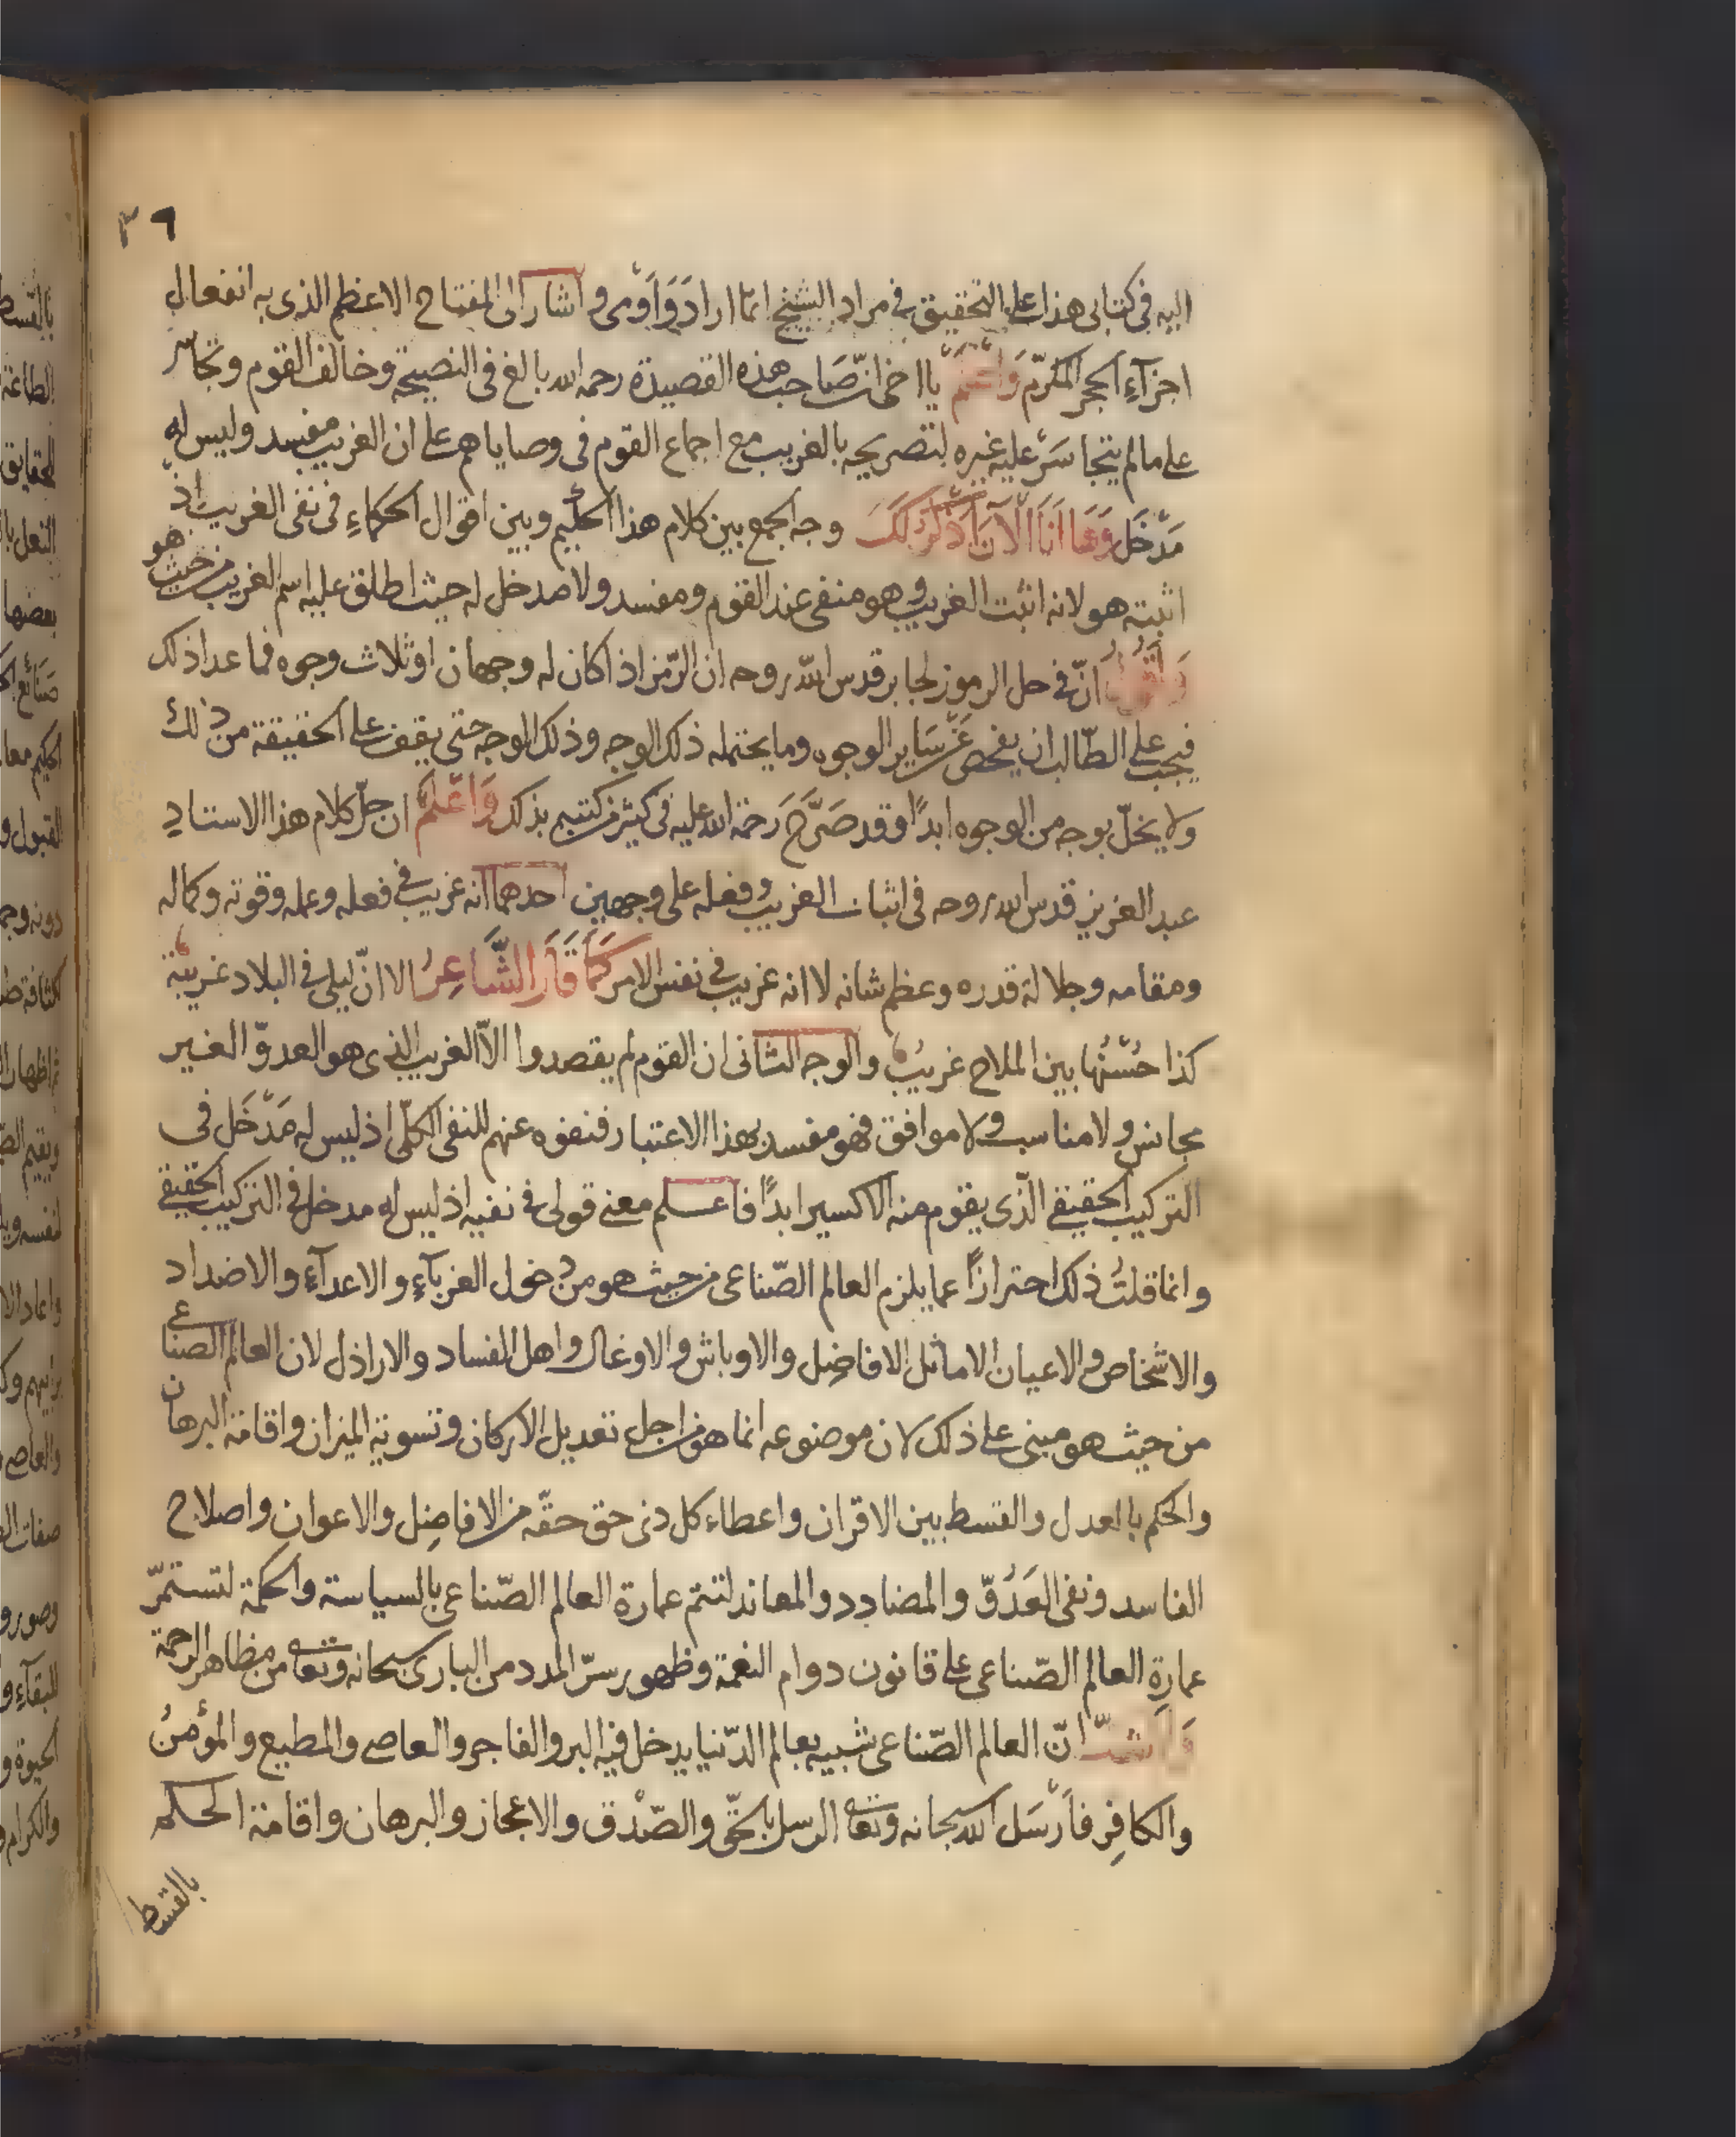 ٣٦
اليه في كتابى هذا على التحقيق في مراد الشيخ انما اراد وَاَوْمى و اشار الى المفتاح الاعظم الذى به انفعال
اجزآءِ الحجر المكرّم وَاعْلَمْ يا اخى انّ صَاحب هذه القصيدة رحمه الله بالغ فى النصيحة وخالف القوم وتجاسر
على ما لم يتجاسَرْ عليه غيره لتصريحه بالغريب مع اجماع القوم فى وصاياهم على ان الغريب مفسد وليس له
مَدْخَل وَهَا اَنَا الْآنَ اَذْكُرُ لَكَ وجه الجمع بين كلام هذا الحكيم وبين اقوال الحكماءِ فى نفى الغريب اذ
اثبته هو لانه اثبت الغريب وهو منفى عند القوم ومفسد ولا مدخل له حيث اطلق عليه اسم الغريب من حيث هو
وَاَقُولُ انّ في حل الرموز لجابر قدس الله روحه ان الرّمز اذا كان له وجهان او ثلاث وجوه فما عدا ذلك
فيجب على الطّالب ان يفحص عَنْ سَاير الوجوه وما يحتمله ذلك الوجه وذلك الوجه حتى يقف على الحقيقة من ذلك
ولا يخلّ بوجه من الوجوه ابدًا وقد صَرَّحَ رَحمة الله عليه فى كثير من كتبه بذلك وَاعْلَمْ ان جلّ كلام هذا الاستادِ
عبد العزيز قدس الله روحه فى اثبات الغريب وفعله على وجهين احدهما انه غريب في فعله وعمله وقوته وكماله
ومقامه وجلالة قدره وعظم شانه لا انه غريب في نفس الامر كَمَا قَالَ الشَّاعِرُ الا انّ ليلى في البلاد غريبة
كذا حُسْنُها بين الملاح غريبُ والوجه الثانى ان القوم لم يقصدوا الاّ الغريب الذى هو العدوّ الغير
مجانس ولا مناسب ولا موافق فهو مفسد بهذا الاعتبار فنفوه عنهم للنفى الكلّى اذ ليس له مَدْخَل فى
التركيب الحقيقي الّذى يقوم منه الاكسير ابدًا فاعلم معنى قولى في نفيه اذ ليس له مدخل في التركيب الحقيقي
وانما قلتُ ذلك احترازًا عما يلزم العالم الصّناعى من حيث هو من دخول الغربآءِ والاعدآءِ والاضداد
والاشخاص والاعيان الاماثل الافاضِل والاوباش والاوغاد واهل الفساد والاراذل لان العالم الصناعى
من حيث هو مبنى على ذلك لان موضوعه انما هو من اجل تعديل الاركان وتسوية الميزان واقامة البرهان
والحكم باالعدل والقسط بين الاقران واعطاء كل ذى حق حقّه من الافاضِل والاعوان واصلاح
الفاسد ونفى العَدُوّ والمضادد والمعاند لتتم عمارة العالم الصّناعى بالسياسة والحكمة لتستمرّ
عمارةِ العالم الصّناعى على قانون دوام النعمة وظهور سرّ المدد من البارى سبحانه وتعالى من مظاهر الرحمة
انّ العالم الصّناعى شبيه بعالم الدّنيا يدخل فيه البر والفاجر والعاصى والمطيع والمؤمنُ
والكافِر فاَرْسَل الله سبحانه وتعالى الرسل بالحقّ والصّدْق والاعجاز والبرهان واقامة الحكم
بالقسط